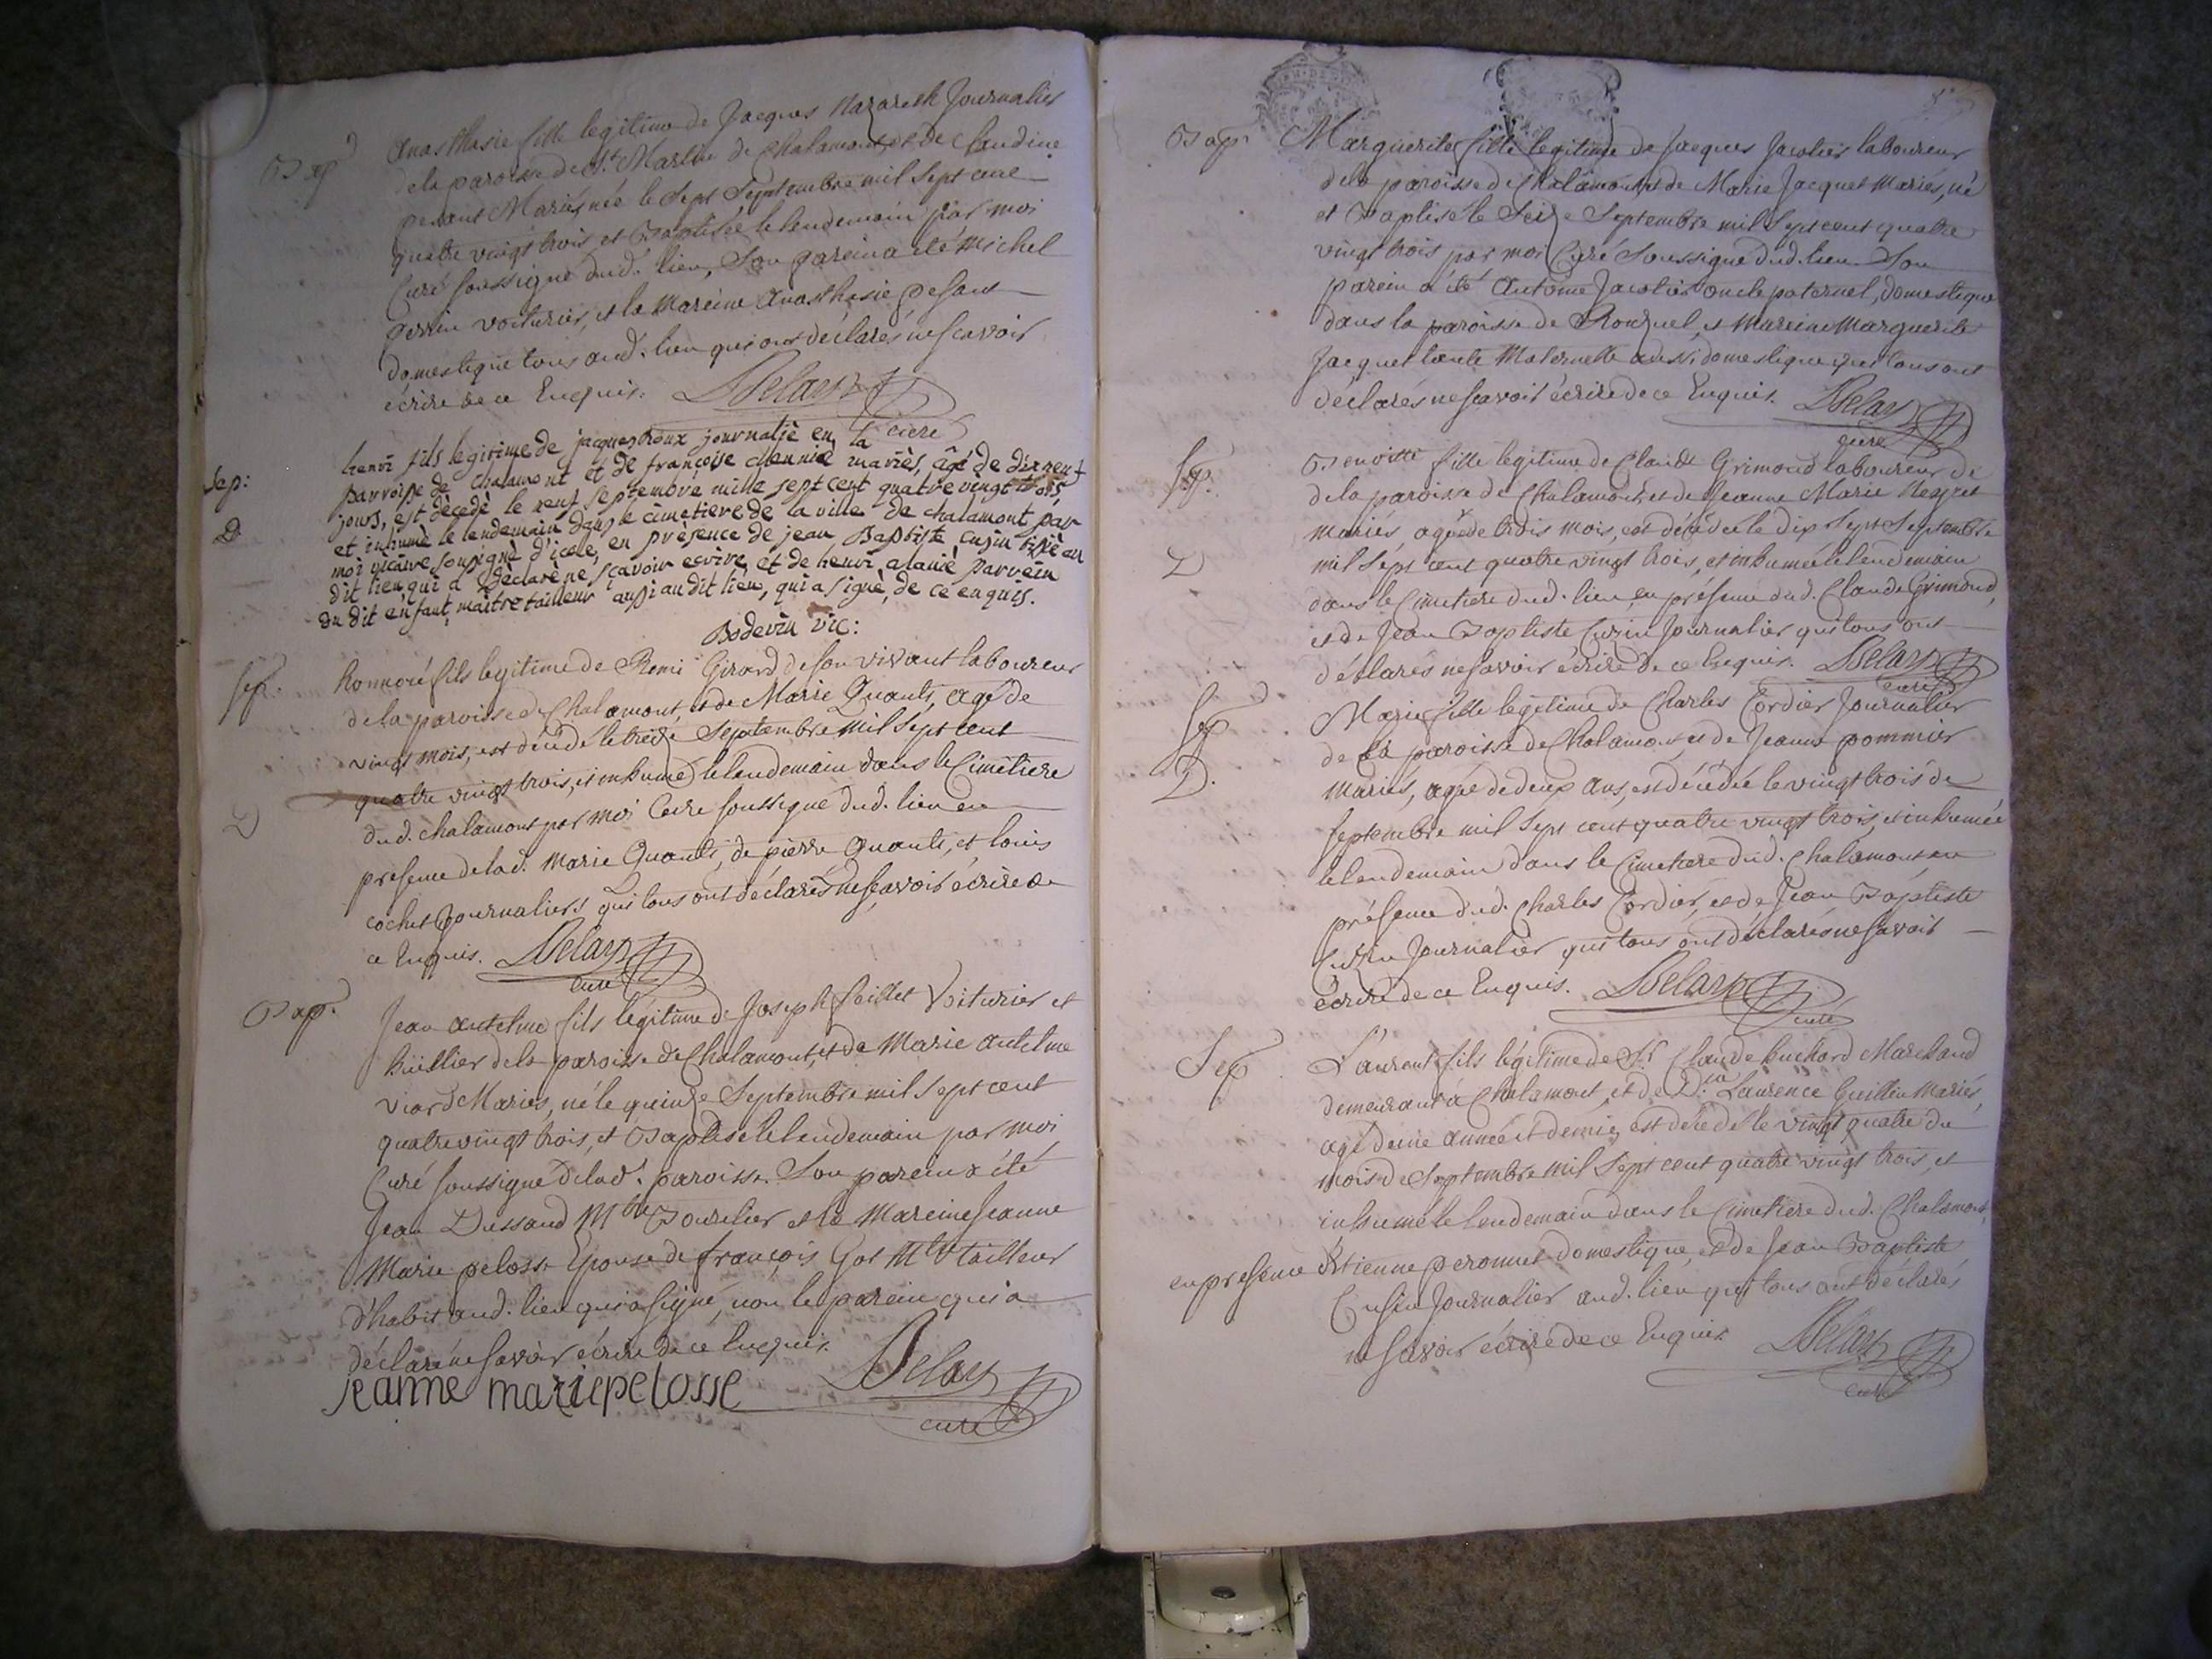 Bap.
Anasthasie fille legitime de Jacques Nazareth Journalier
dela paroisse de St. Martin de Chalamont et de Claudine
Mariés, née le Sept Septembre mil Sept cent
quatre vingt trois, et Baptisée le lendemain par moi
Curé soussigné dud. lien, Son parein a été Michel
voiturier, et la Mareine Anasthasie pesant
domestique tous aud. lieu qui ont déclarés ne scavoir
écrire de ce Enquis. Delaz
curé
Sep:
D
henri fils legitime de jacques Roux journaliè en la
parroisse de chalamont et de françoise mariès, âgé de dix neuf
jours, est dècedè le neuf septembre mille sept cent quatre vingt trois,
et inhumè le lendemain dans le cimetiere de la ville de chalamont par
moi vicaire soussignè d'icele, en prèsence de jean Baptiste cusin au
dit lieu qui a dèclarè ne sçavoir ecrire et de henri parrein
du dit enfant, maitre tailleur aussi au dit lieu, qui a signè, de ce enquis.
Bodevin vic:
Sep.
D
honnoré fils legitime de Remi Girard de son vivant laboureur
dela paroisse de Chalamont, et de Marie Quanti, agé de
vingt mois, est décédé le treize Septembre mil Sept cent
quatre vingt trois, et inhumé le lendemain dans le Cimetiere
dud. chalamont par moi Curé soussigné dud. lieu en
presence delad. Marie Quanti, de pierre Quanti, et louis
cochet Journaliers qui tous ont déclarés ne scavoir écrire de
ce Enquis. Delaz
curé
Bap.
Jean Antelme fils légitime de Joseph Voiturier et
huillier dela paroisse de Chalamont, et de Marie Antelme
Viard Mariés, né le quinze Septembre mil Sept cent
quatre vingt trois, et Baptisé le lendemain par moi
Curé soussigné delad. paroisse. Son parein a été
Jean Dussaud Mtre Bourelier et la Mareine Jeanne
Marie pelosse Epouse de françois Got Mtre tailleur
d'habit aud. lieu qui a signé, non le parein qui a
déclaré ne savoir écrire de ce Enquis.
jeanne marie pelosse Delaz
curé
Bap.
Marguerite fille legitime de Jacques Jacolier laboureur
dela paroisse de Chalamont et de Marie Jacquet Mariés, né
et Baptisé le Seize Septembre mil Sept cent quatre
vingt trois par moi Curé Soussigné dud. lieu Son
parein a été Antoine Jacolier oncle paternel, domestique
dans la paroisse de et Mareine Marguerite
Jacquet tante Maternelle aussi domestique qui tous ont
déclarés ne scavoir écrire de ce Enquis. Delaz
curé
Sep.
D
Benoitte fille legitime de Claude Grimond laboureur de
dela paroisse de Chalamont, et de Jeanne Marie
mariés, agée de trois mois, est décédée le dix Sept Septembre
mil Sept cent quatre vingt trois, et inhumée le lendemain
dans le Cimetiere dud. lieu, en présence dud. Claude Grimond,
et de Jean Baptiste Cusin Journalier qui tous ont
déclarés ne savoir écrire de ce Enquis. Delaz
curé
Sep
D.
Marie fille legitime de Charles Cordier Journalier
de la paroisse de Chalamont et de Jeanne pommier
mariés, agée de deux ans, est décédée le vingt trois de
septembre mil Sept cent quatre vingt trois, et inhumée
le lendemain dans le Cimetiere dud. Chalamont en
présence dud. Charles Cordier, et de Jean Baptiste
Cusin Journalier qui tous ont déclarés ne savoir
écrire de ce Enquis. Delaz
curé
Sep
Laurent fils légitime de Sr. Claude Marchand
demeurant à Chalamont, et de Laurence Guillin Mariés,
agé d'une année et demie, est décédé le vingt quatre du
mois de Septembre mil Sept cent quatre vingt trois, et
inhumé le lendemain dans le Cimetiere dud. Chalamont
en presence d'Etienne peronnet domestique, et de Jean Baptiste
Cusin Journalier aud. lieu qui tous ont déclarés
ne savoir écrire de ce Enquis. Delaz
curé